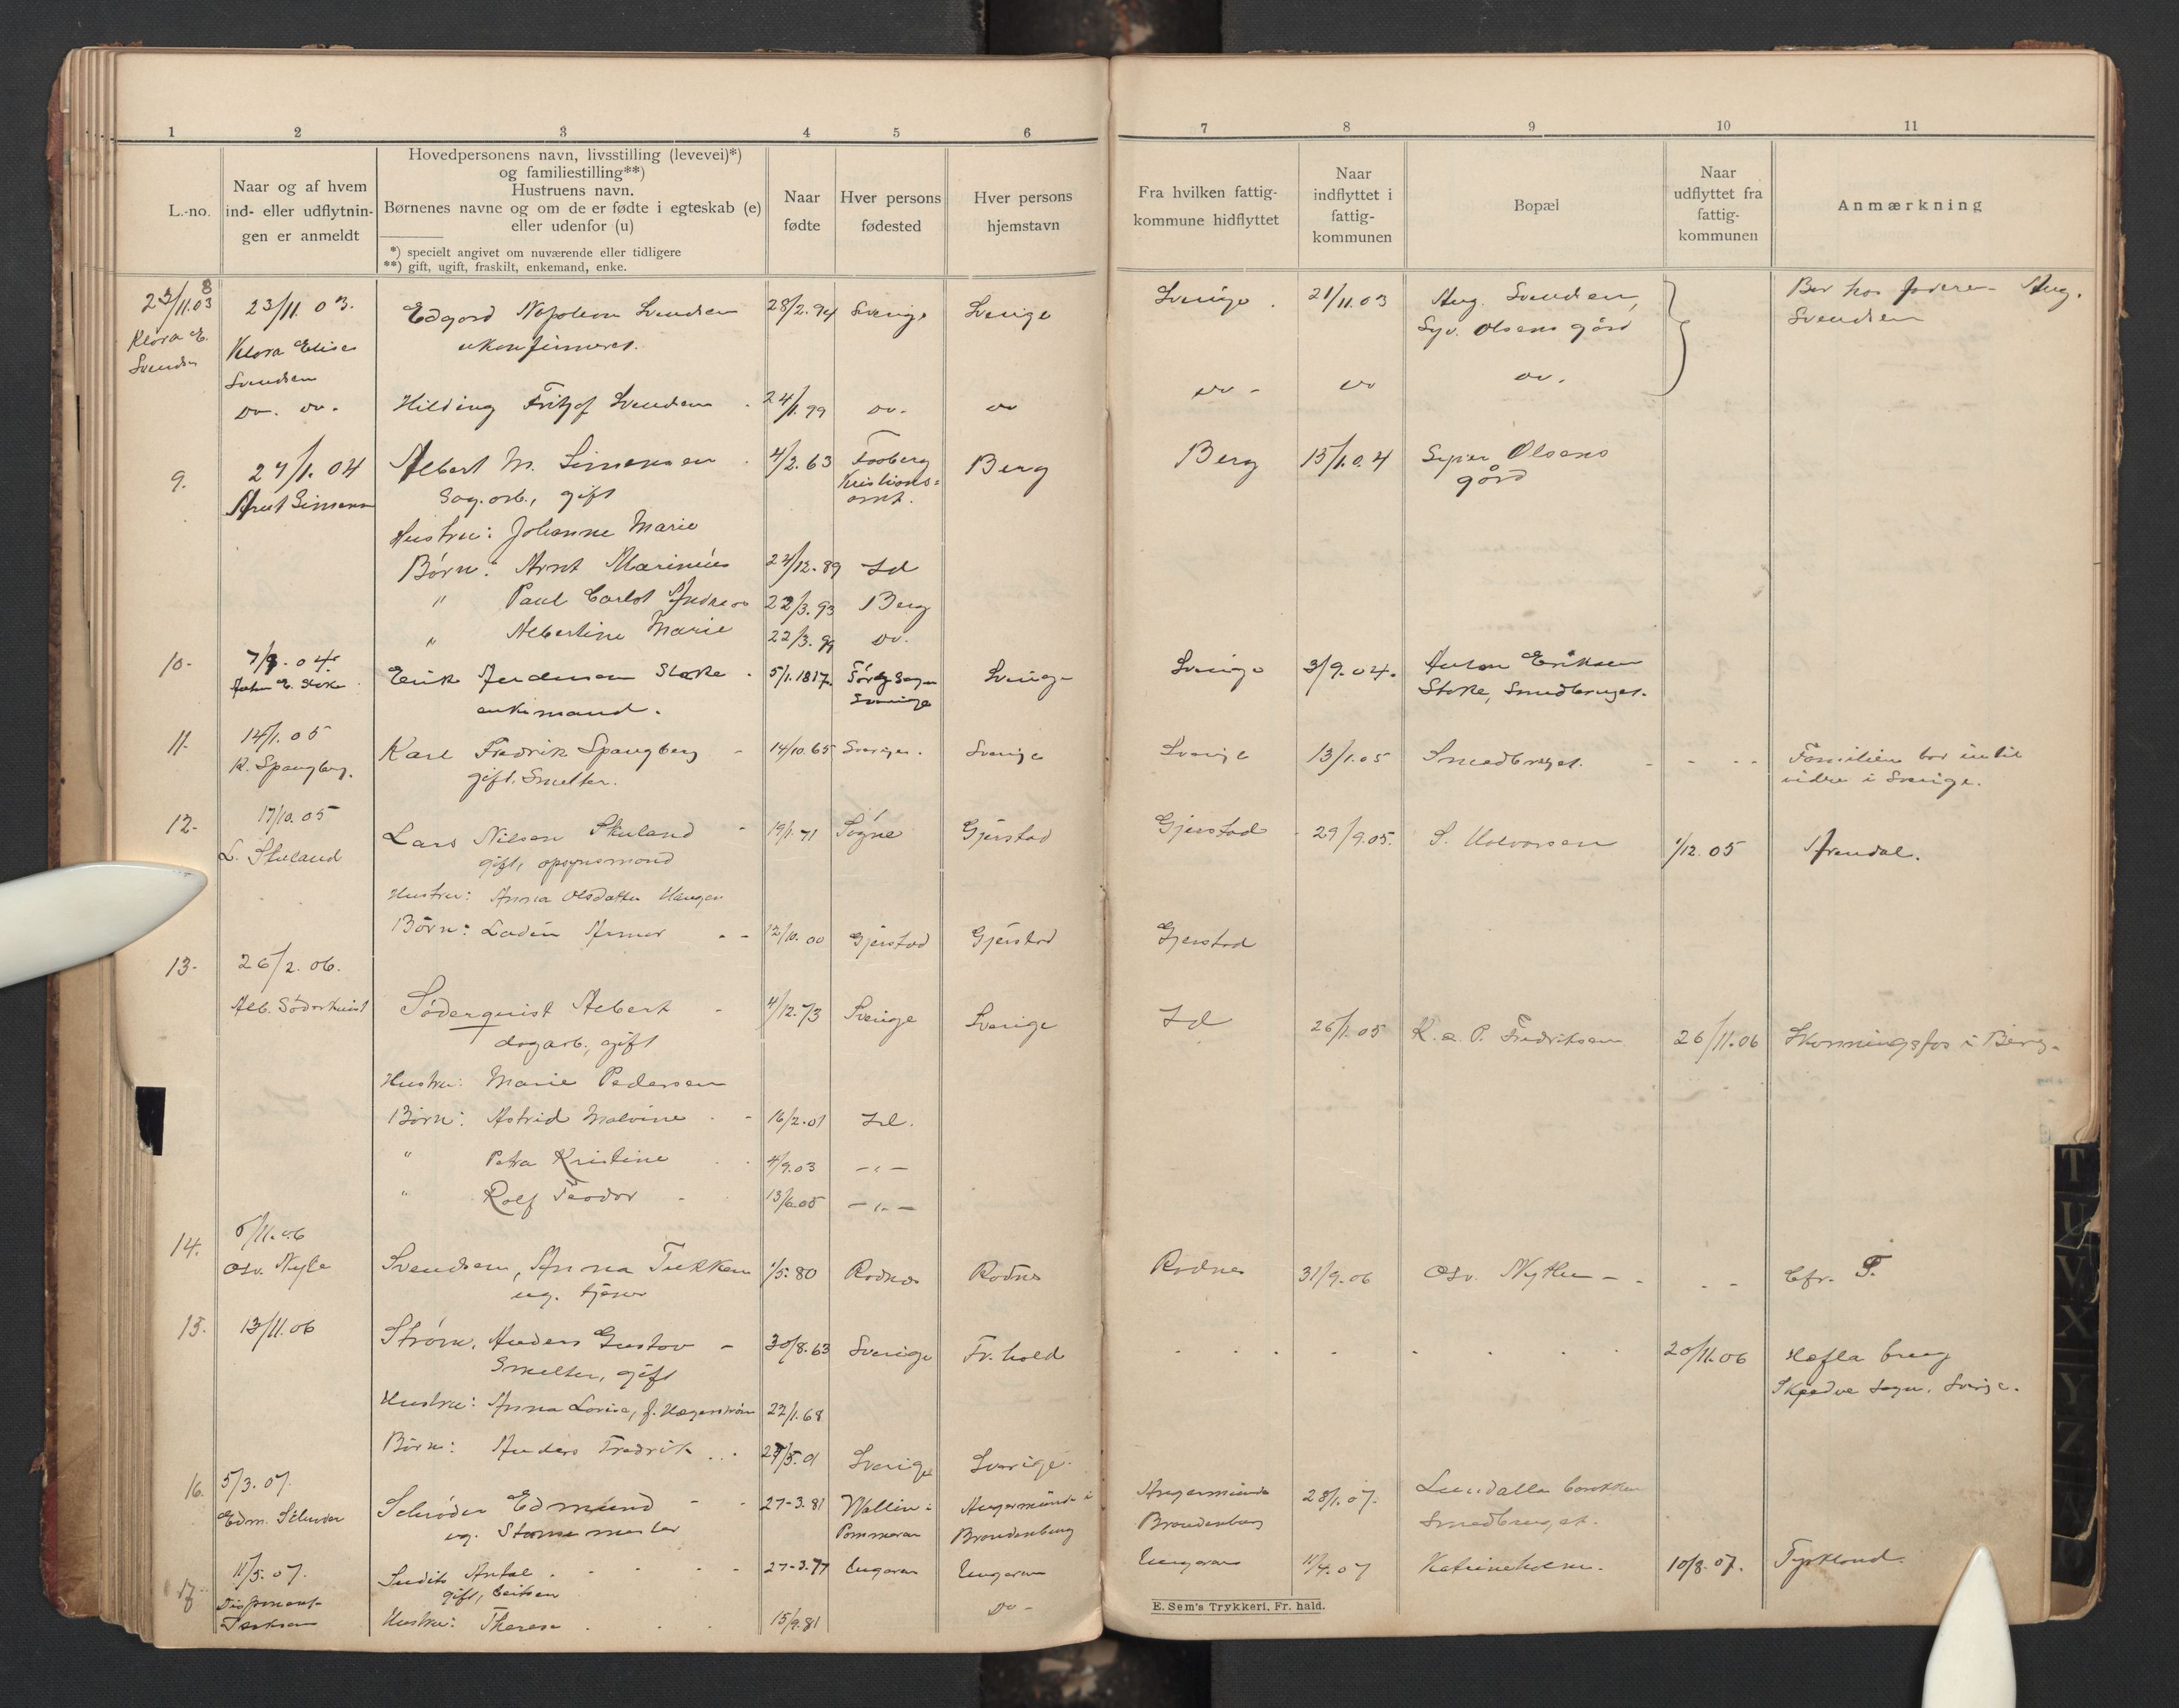 1 2 3 4 5 6 7 8 9 10 11
L.-no.
Naar og af hvem
ind- eller udflytnin-
gen er anmeldt
Hovedpersonens navn, livsstilling (levevei)*)
og familiestilling**)
Hustruens navn.
Børnenes navne og om de er fødte i egteskab (e)
eller udenfor (u)
*) specielt angivet om nuværende eller tidligere
**) gift, ugift, fraskilt, enkemand, enke.
Naar
fødte
Hver persons
fødested
Hver persons
hjemstavn
Fra hvilken fattig-
kommune hidflyttet
Naar
indflyttet i
fattig-
kommunen
Bopæl
Naar
udflyttet fra
fattig-
kommunen
Anmærkning
8
23/11.03 23/11 03. Edgard Napoleon Svendsen 28/2.94 Sverige Sverige Sverige. 21/11.03 Aug. Svendsen, Bor hos faderen Aug.
Klara E. Klara Elise ukonfirmeret. Syv. Olsens gård Svendsen
Svendsen Svendsen
Do. do. Hilding Fritjof Svendsen 24/1.99 do. do do - do do.
9. 27/1.04 Albert M. Simensen 4/2.63 Faaberg Berg Berg 15/1.04 Syver Olsens
Arnt Simensen Sag.arb., gift Kristians= gård
amt.
Hustru: Johanne Marie
Børn: Arnt Marinius 24/12.89 Id
" Paul Carlot Andreas 22/3.93 Berg
" Albertine Marie 22/3.99 do.
10- 7/9.04. Erik Andersen Stake 5/1.1817. Sverige Sverige 3/9.04. Anton Eriksen
Anton E. Stake enkemand. Sverige Stake, Smedbruget.
11. 14/1.05 Karl Fredrik Spangberg 14/10.65 Sverige. Sverige Sverige 13/1.05 Smedbruget. Familien bor indtil
K. Spangberg. gift. Smelter. vidre i Sverige.
12- 17/10.05 Lars Nilsen Skuland 19/1.71 Søgne Gjerstad Gjerstad 29/9.05. S. Halvorsen 1/12.05 Arendal.
L. Skuland gift, opsynsmand
Hustru: Anna Olsdatter Haugen
Børn: Ladin Armer 12/10.00 Gjerstad Gjerstad Gjerstad
13- 26/2.06.
Alb. Söderkvist Söderquist Albert 4/12.73 Sverige Sverige Id 26/1.05 K. a. P. Fredriksen 26/11.06 Skonningsfos i Berg.
dagarb., gift
Hustru: Marie Pedersen
Børn: Astrid Malvine 16/2.01 Id.
" Petra Kristine 4/9.03 -"-
" Rolf Teodor 13/6.05 -"-
14. 5/11.06 Svendsen, Anna Tukken 1/5.80 Rødnes Rødnes Rødnes 31/9.06 Osv. Nythe Cfr. T.
Osv. Nyhe ug. tjener
15. 13/11.06 Strøm, Anders Gustav 30/8.63 Sverige Fr.hald 20/11.06 Hefla brug
Smelter, gift Skedve sogn. Sverge.
Hustru: Anna Lovise, f. Hagerstrøm 22/1.68
Børn: Anders Fredrik 29/5.01 Sverige Sverige.
16. 5/3.07. Schröder Edmund 27-3.81 Wallin i Angermünde i Angermünde 28/1.07. Lundalla barakker
Edm. Schrøder ug. Stammester Pommern Brandenburg Brandenburg Smedbruget.
17. 11/5.07. Sudits Antal 27-3.77 Ungarn Ungarn Ungarn 11/4.07 Katrineholm. 10/8.07. Tyskland.
gift,
Hustru: Therese 15/9.81 do -
E. Sem's Trykkeri, Fr.hald.
T
U
V
X
Y
Z